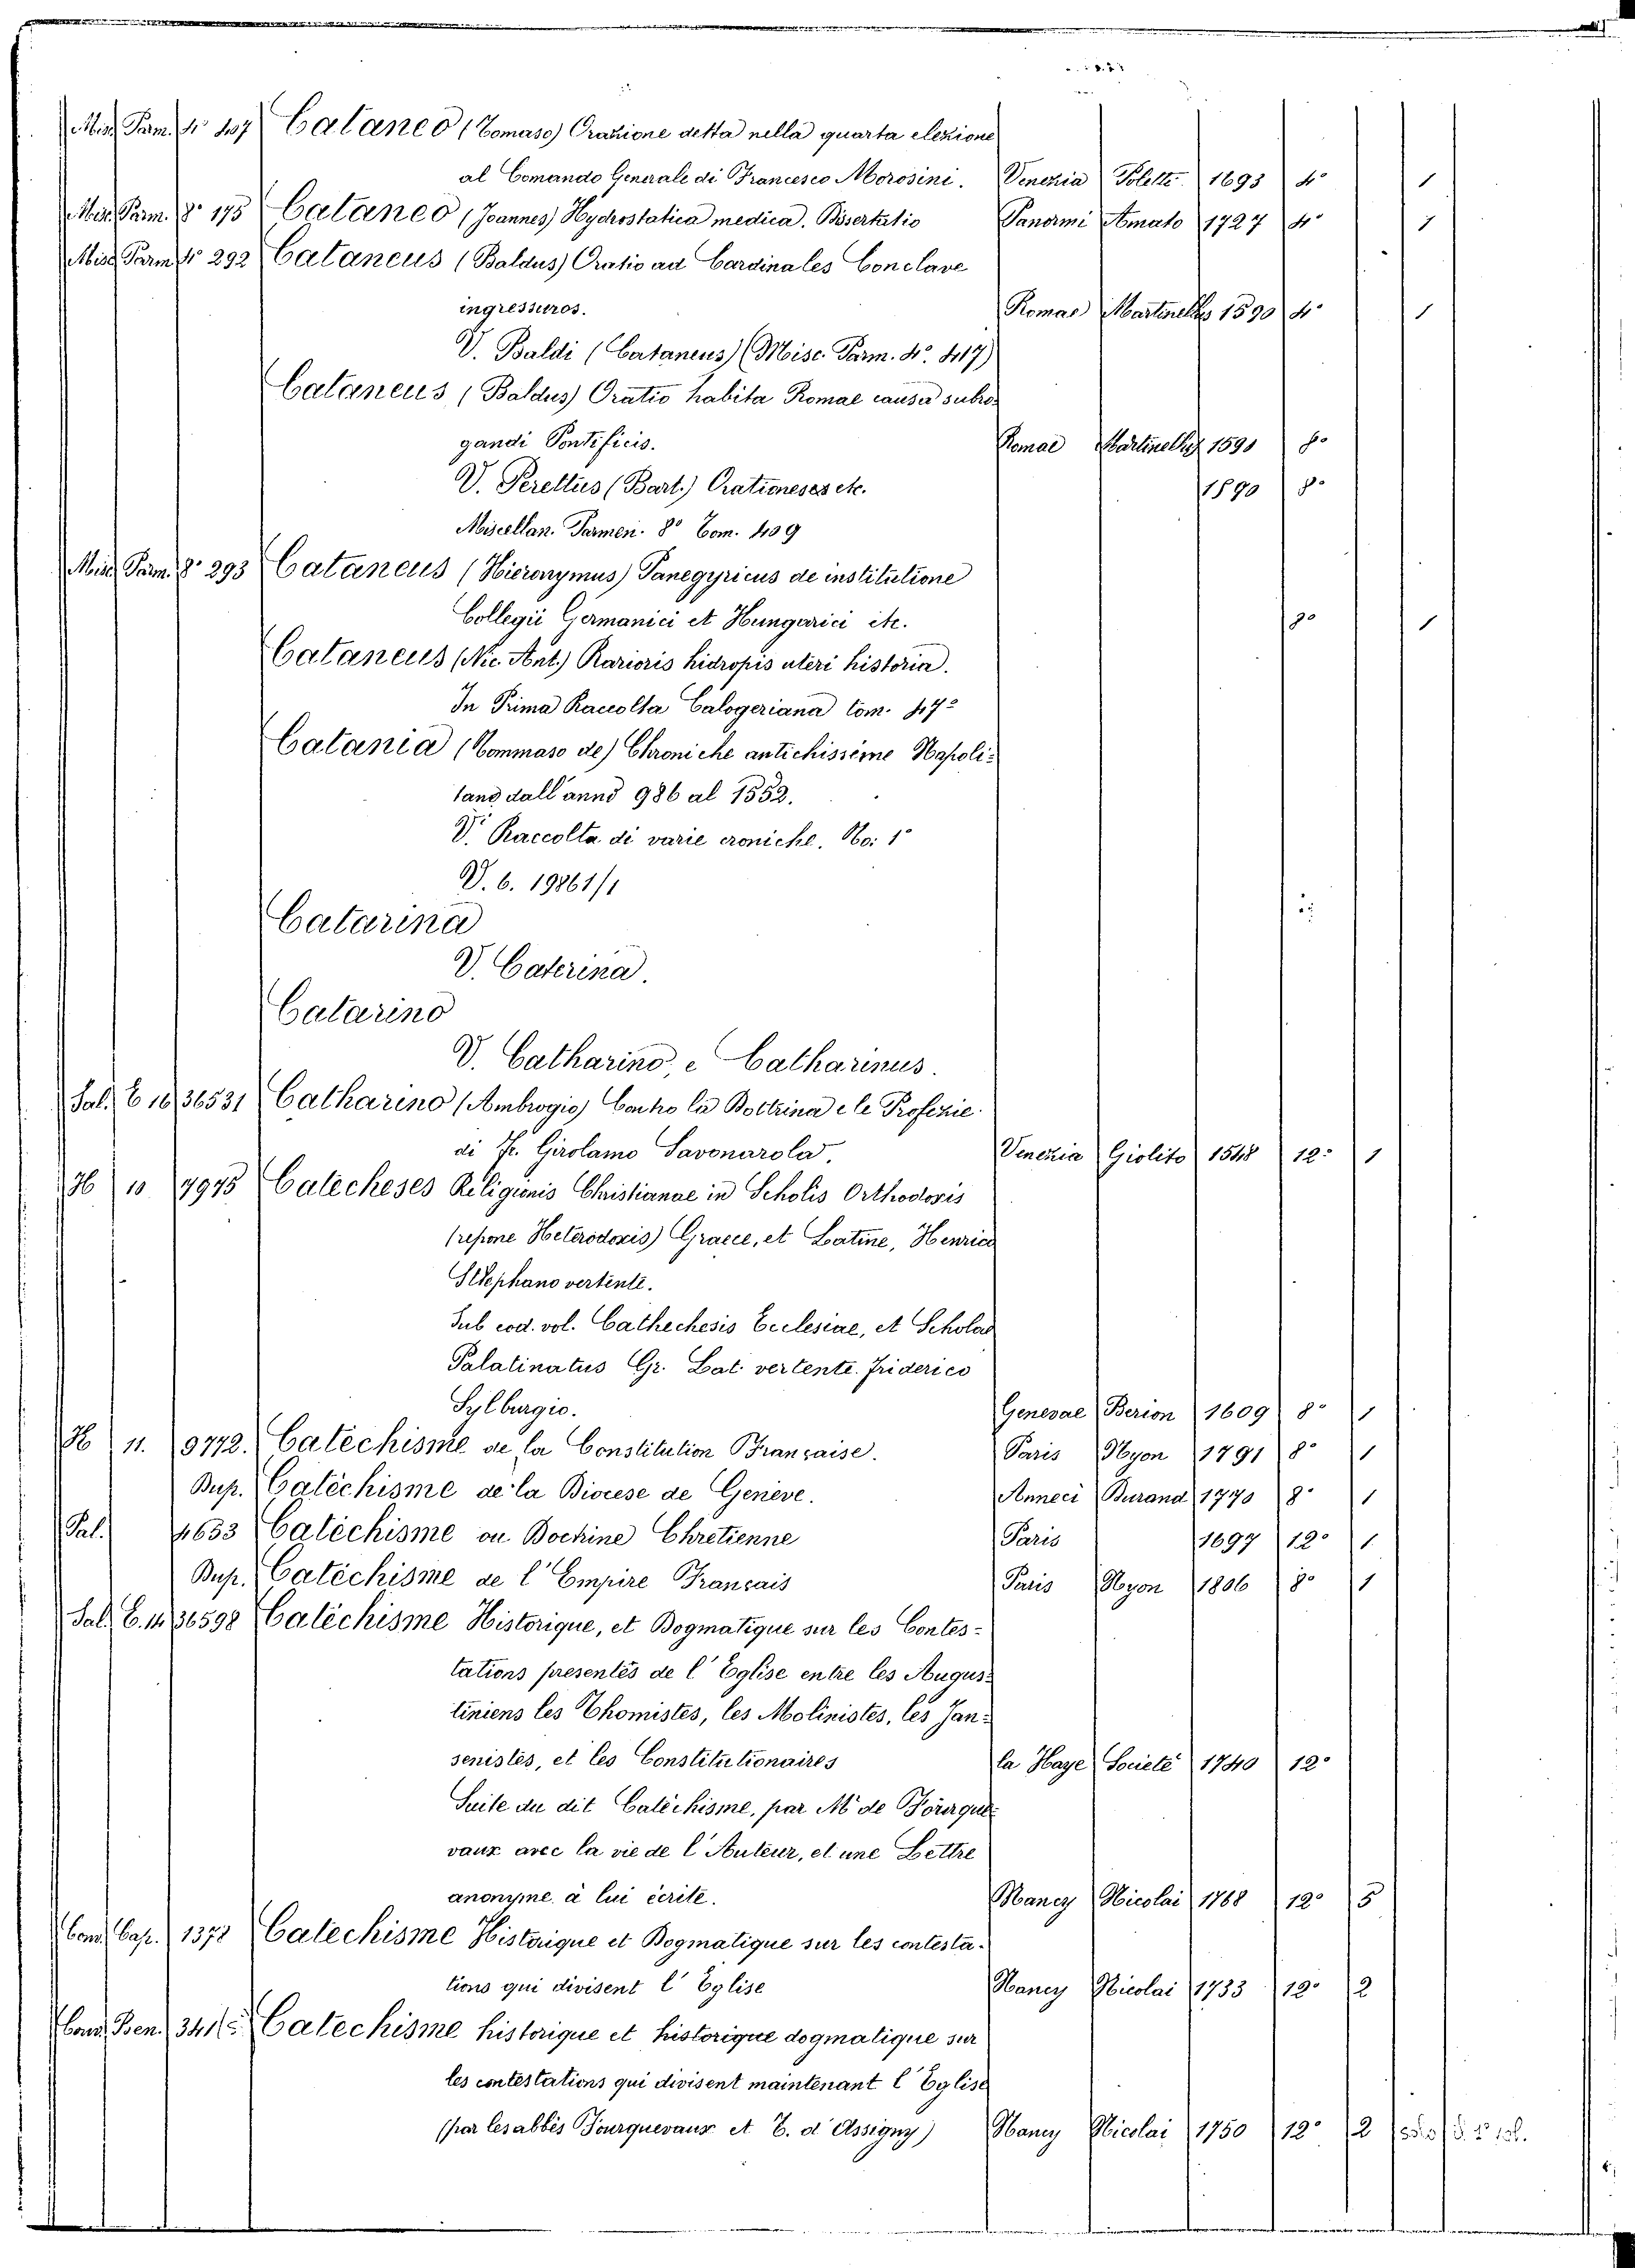 Misc. Parm. 4° 407 Cataneo (Tomaso) Orazione detta nella quarta elezione
al Comando Generale di Francesco Morosini. Venezia Poletti 1693 4° 1
Misc. Parm. 8° 175 Cataneo (Joannes) Hydrostatica medica. Dissertatio Panormi Amato 1727 4° 1
Misc. Parm. 4° 292 Cataneus (Baldus) Oratio ad Cardinales Conclave
ingressuros. Romae Martinellus 1590 4° 1
V. Baldi (Cataneus) (Misc. Parm. 4°. 417)
Cataneus (Baldus) Oratio habita Romae causa subro-
gandi Pontificis. Romae Martinellus 1591 8°
V. Perettus (Bart.) Orationeses etc. 1590 8°
Miscellan. Parmen. 8° Tom. 409
Misc. Parm. 8° 293 Cataneus (Hieronymus) Panegyricus de institutione
Collegii Germanici et Hungarici etc. 8° 1
Cataneus (Nic. Ant.) Rarioris hidropis uteri historia.
In Prima Raccolta Calogeriana tom. 47°
Catania (Tommaso de) Chroniche antichissime Napoli-
tano dall'anno 986 al 1552.
V. Raccolta di varie croniche. No: 1°
V. 6. 19861/1
Catarina
V. Caterina.
Catarino
V. Catharino, e Catharinus.
Sal. C 16 36531 Catharino (Ambrogio) Contro la Dottrina e le Profezie
di Fr. Girolamo Savonarola. Venezia Giolito 1548 12° 1
H 10 7975 Catecheses Religionis Christianae in Scholis Orthodoxis
(repone Heterodoxis) Graece, et Latine, Henrico
Stephano vertente.
Sub eod. vol. Cathechesis Ecclesiae, et Scholae
Palatinatus Gr. Lat. vertente Friderico
Sylburgio. Genevae Berion 1609 8° 1
H 11. 9772. Catéchisme de la Constitution Française. Paris Nyon 1791 8° 1
Dup. Catéchisme de la Diocese de Genève. Anneci Durand 1770 8° 1
Pal. 4653 Catéchisme ou Doctrine Chretienne Paris 1697 12° 1
Dup. Catéchisme de l'Empire Français Paris Nyon 1806 8° 1
Sal. C. 14 36598 Catéchisme Historique, et Dogmatique sur les Contes-
tations presentés de l'Eglise entre les Augus-
tiniens les Thomistes, les Molinistes, les Jan-
senistes, et les Constitutionaires la Haye Societé 1740 12°
Suite du dit Catéchisme, par Mr de Fourque-
vaux avec la vie de l'Auteur, et une Lettre
anonyme à lui écrite. Nancy Nicolai 1768 12° 5
Conv. Cap. 1372 Catechisme Historique et Dogmatique sur les contesta-
tions qui divisent l'Eglise Nancy Nicolai 1733 12° 2
Conv. Ben. 341 Catechisme historique et historique dogmatique sur
les contestations qui divisent maintenant l'Eglise
(par les abbés Fourquevaux et T. d'Assigny) Nancy Nicolai 1750 12° 2